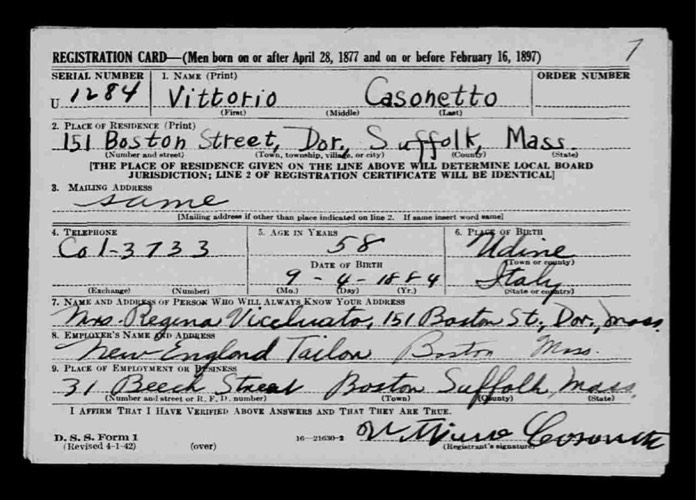 7
REGISTRATION CARD—(Men born on or after April 28, 1877 and on or before February 16, 1897)
SERIAL NUMBER 1. NAME (Print) ORDER NUMBER
U 1284 Vittorio Casonetto
(First) (Middle) (Last)
2. PLACE OF RESIDENCE (Print)
151 Boston Street, Dor, Suffolk, Mass.
(Number and street) (Town, township, village, or city) (County) (State)
[THE PLACE OF RESIDENCE GIVEN ON THE LINE ABOVE WILL DETERMINE LOCAL BOARD
JURISDICTION; LINE 2 OF REGISTRATION CERTIFICATE WILL BE IDENTICAL]
3. MAILING ADDRESS
same
[Mailing address if other than place indicated on line 2. If same insert word same]
4. TELEPHONE 5. AGE IN YEARS 6. PLACE OF BIRTH
Col-3733 58 Udine
DATE OF BIRTH (Town or county)
9 - 4 - 1884 Italy
(Exchange) (Number) (Mo.) (Day) (Yr.) (State or country)
7. NAME AND ADDRESS OF PERSON WHO WILL ALWAYS KNOW YOUR ADDRESS
Mrs. Regina 151 Boston St., Dor., Mass.
8. EMPLOYER'S NAME AND ADDRESS
New England Tailor Boston Mass.
9. PLACE OF EMPLOYMENT OR BUSINESS
31 Beech Street Boston Suffolk Mass.
(Number and street or R. F. D. number) (Town) (County) (State)
I AFFIRM THAT I HAVE VERIFIED ABOVE ANSWERS AND THAT THEY ARE TRUE.
D. S. S. Form 1
(Revised 4-1-42) (over) 16—21630-2 (Registrant's signature)